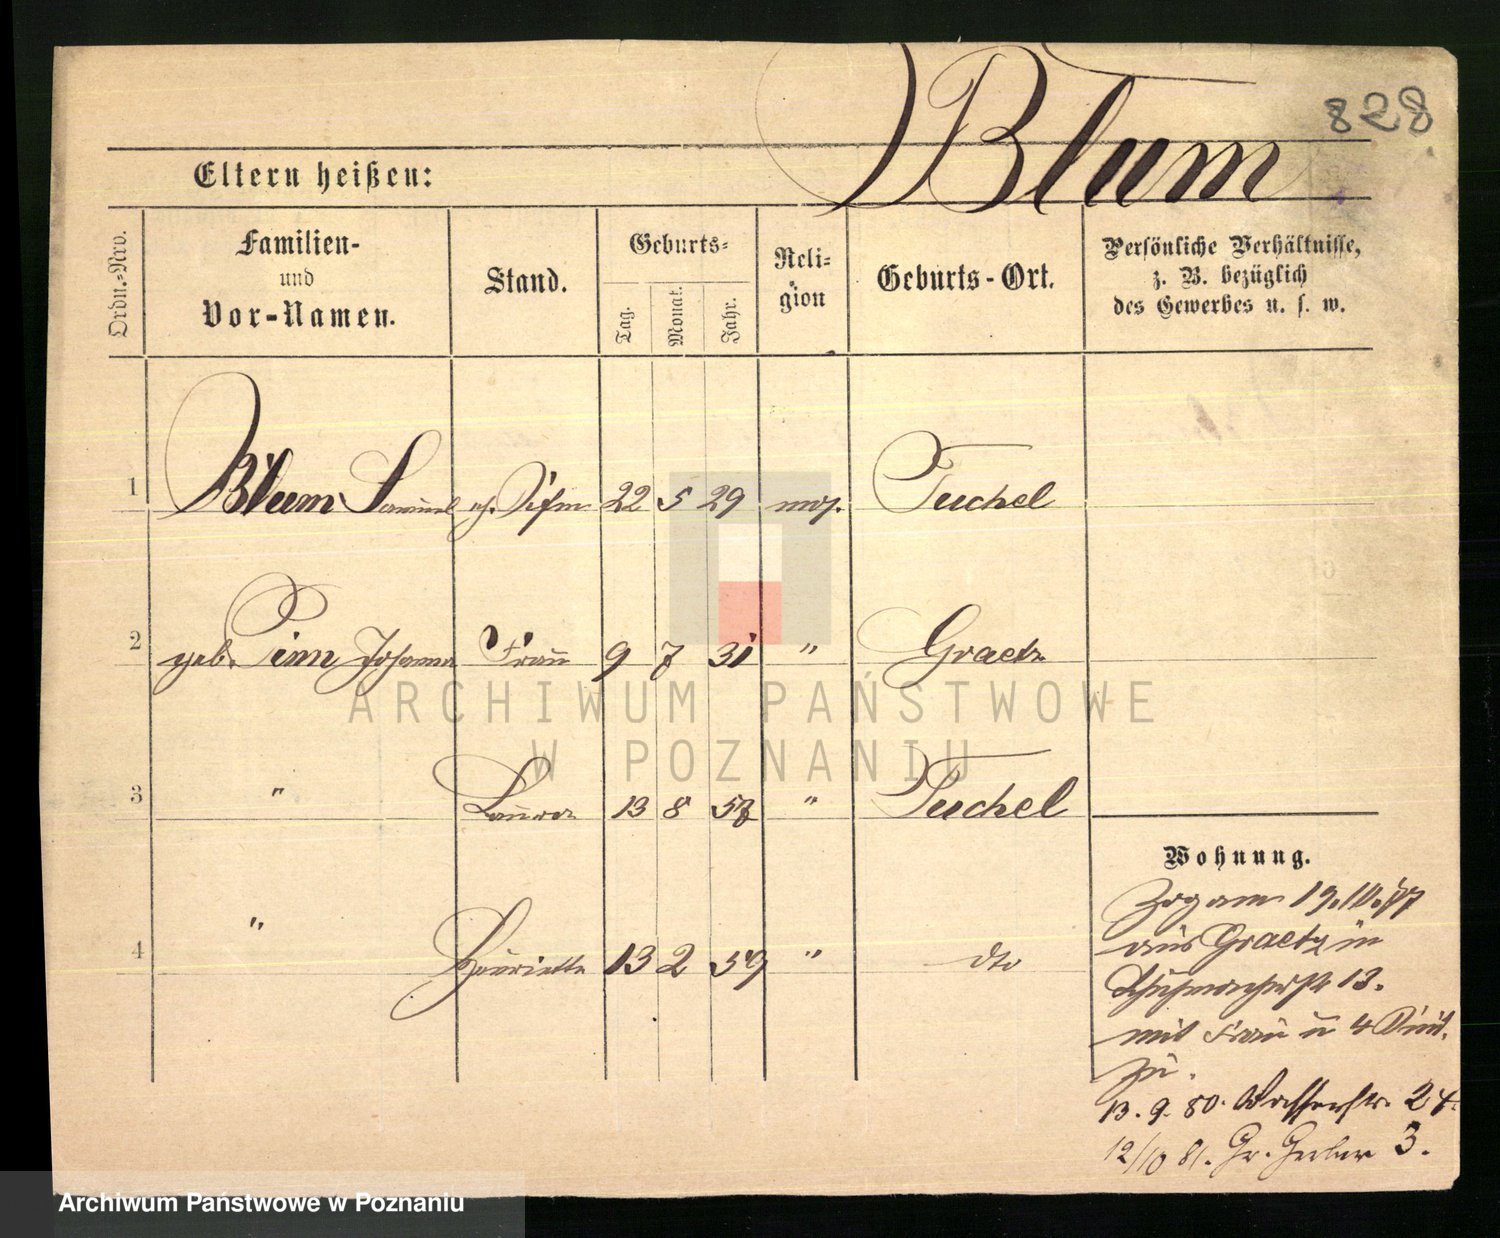 828
Blum
Eltern heißen:
Ordn.-Nro.
Familien-
und
Vor-Namen.
Stand.
Geburts-
Tag.
Monat.
Jahr.
Reli-
gion
Geburts-Ort.
Persönliche Verhältnisse,
z. B. bezüglich
des Gewerbes u. s. w.
1 Blum Samuel 22 5 29 mos. Tuchel
2 geb. Pinn Johanna Frau 9 7 31 " Graetz
3 " Laura 13 8 57 " Tuchel
4 " Henriette 13 2 59 " dto
Wohnung.
Zog am 19.10.77
aus Graetz in
Schuhmacherstr 13.
mit Frau u 4 Kind.
zu.
13. 9. 80. Wasserstr. 24.
12/10 81. Gr. Gerber 3.
ARCHIWUM PAŃSTWOWE
W POZNANIU
Archiwum Państwowe w Poznaniu